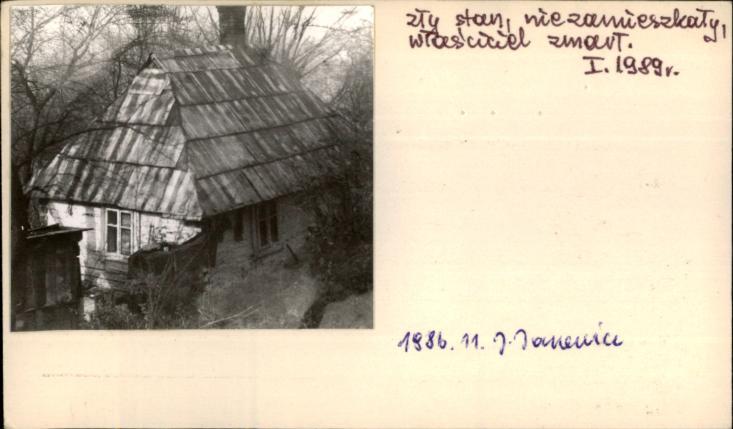 zły stan, niezamieszkały,
właściciel zmarł.
I. 1989r.
1986. 11. J.